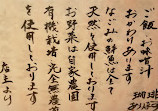 ご飯、お味噌汁
おかわりあります
なごみ鮮魚は全て
天然を使用しております
お野菜は自家農園
有機栽培、完全無農薬
を使用しております
店主より
珈琲
あり